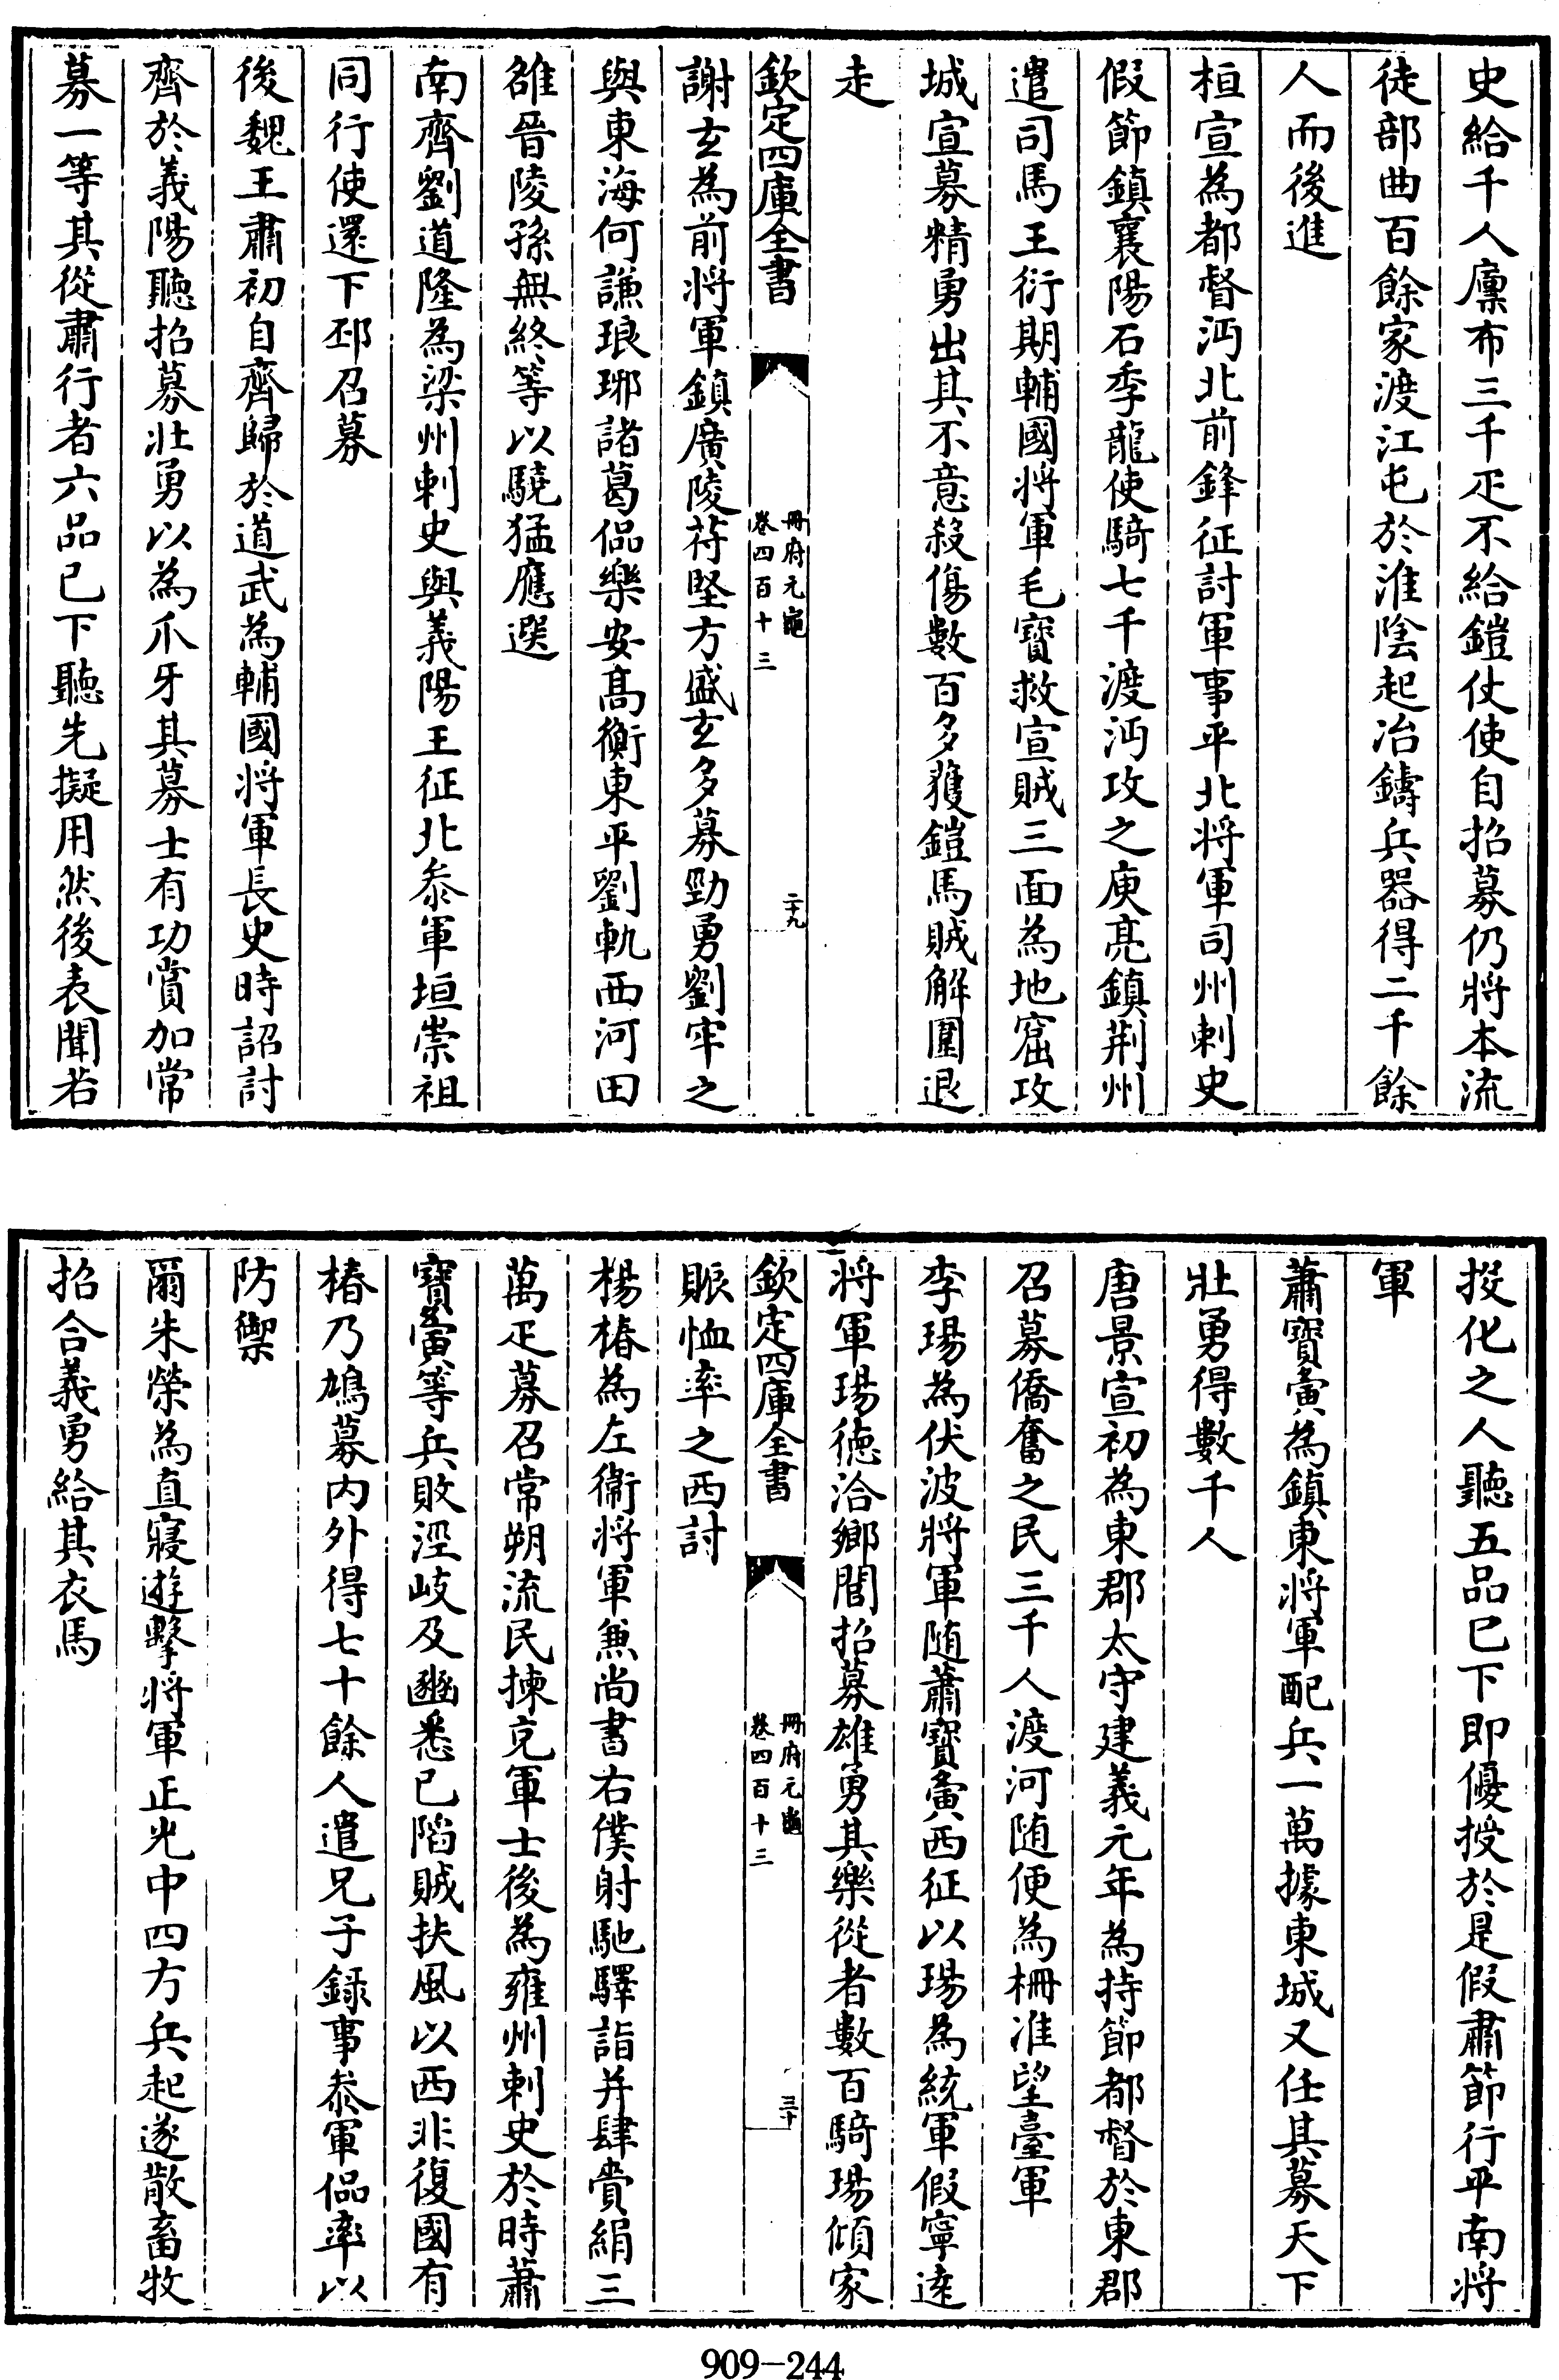 史給千人廩布三千疋不給鎧仗使自招募仍將本流
徒部曲百餘家渡江屯於淮陰起冶鑄兵器得二千餘
人而後進
桓宣為都督沔北前鋒征討軍事平北將軍司州刺史
假節鎮襄陽石季龍使騎七千渡沔攻之庾亮鎮荆州
遣司馬王衍期輔國將軍毛寶救宣賊三面為地窟攻
城宣募精勇出其不意殺傷數百多獲鎧馬賊解圍退
走
欽定四庫全書
冊府元龜
卷四百十三
二十九
謝玄為前將軍鎮廣陵苻堅方盛玄多募勁勇劉牢之
與東海何謙琅琊諸葛侃樂安高衡東平劉軌西河田
雒晉陵孫無終等以驍猛應選
南齊劉道隆為梁州刺史與義陽王征北叅軍垣崇祖
同行使還下邳召募
後魏王肅初自齊歸於道武為輔國將軍長史時詔討
齊於義陽聽招募壯勇以為爪牙其募士有功賞加常
募一等其從肅行者六品已下聽先擬用然後表聞若
投化之人聽五品已下即優授於是假肅節行平南將
軍
蕭寶夤為鎮東將軍配兵一萬據東城又任其募天下
壯勇得數千人
唐景宣初為東郡太守建義元年為持節都督於東郡
召募僑奮之民三千人渡河随便為柵准望臺軍
李瑒為伏波將軍随蕭寶夤西征以瑒為統軍假寧逺
將軍瑒徳洽鄉閭招募雄勇其樂從者數百騎瑒傾家
欽定四庫全書
冊府元龜
卷四百十三
三十
賑恤率之西討
楊椿為左衞將軍兼尚書右僕射馳驛詣并肆賫絹三
萬疋募召常朔流民揀充軍士後為雍州刺史於時蕭
寶夤等兵敗涇岐及豳悉已陷賊扶風以西非復國有
椿乃鳩募内外得七十餘人遣兄子録事叅軍侃率以
防禦
爾朱榮為直寢遊擊將軍正光中四方兵起遂散畜牧
招合義勇給其衣馬
909-244